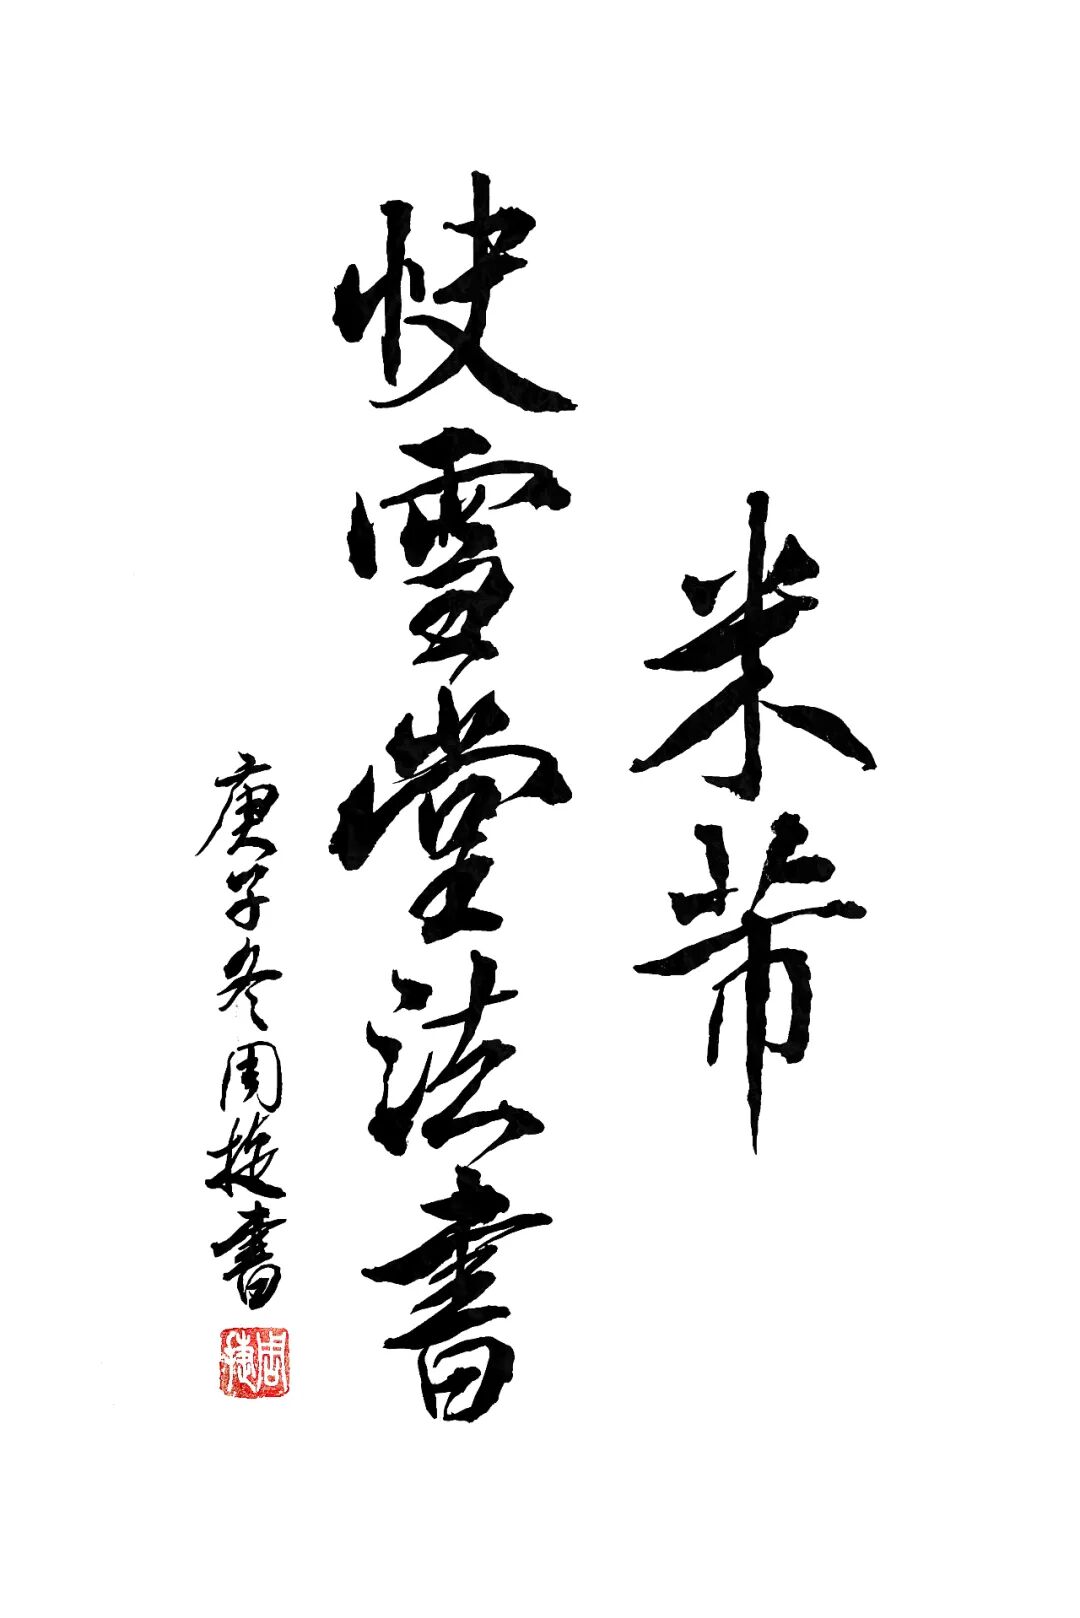 米芾
快雪堂法書
庚子冬周捷書
周捷